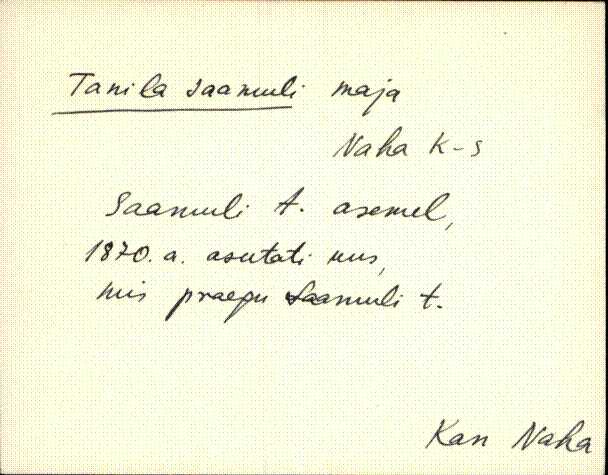 Tanila saamuli maja
Naha k-s
Saamuli t. asemel,
1870. a. asutati uus,
mis praegu Saamuli t.
Kan Naha